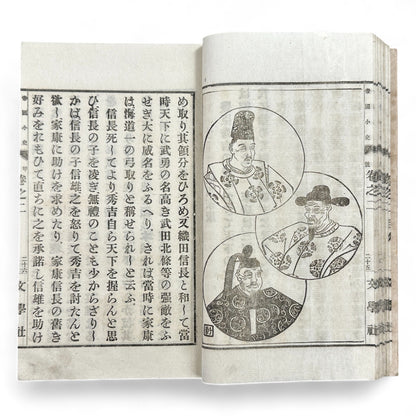 め取り其領分をひろめ又織田信長と和して當
時天下に武勇の名高き武田北條等の强敵をふ
せぎ大に威名をふるへり、されば當時に家康
は海道一の弓取りと稱せられしと云ふ、
信長死してより秀吉自ら天下を握らんと思
ひ信長の子を凌ぎ無禮のことも少からざりし
かば信長の子信雄之を怒りて秀吉を討たんと
欲し家康に助けを求めたり、家康信長の舊き
好みをおもひて直ちに之を承諾し信雄を助け
帝國小史
卷之二
二十五
文學社